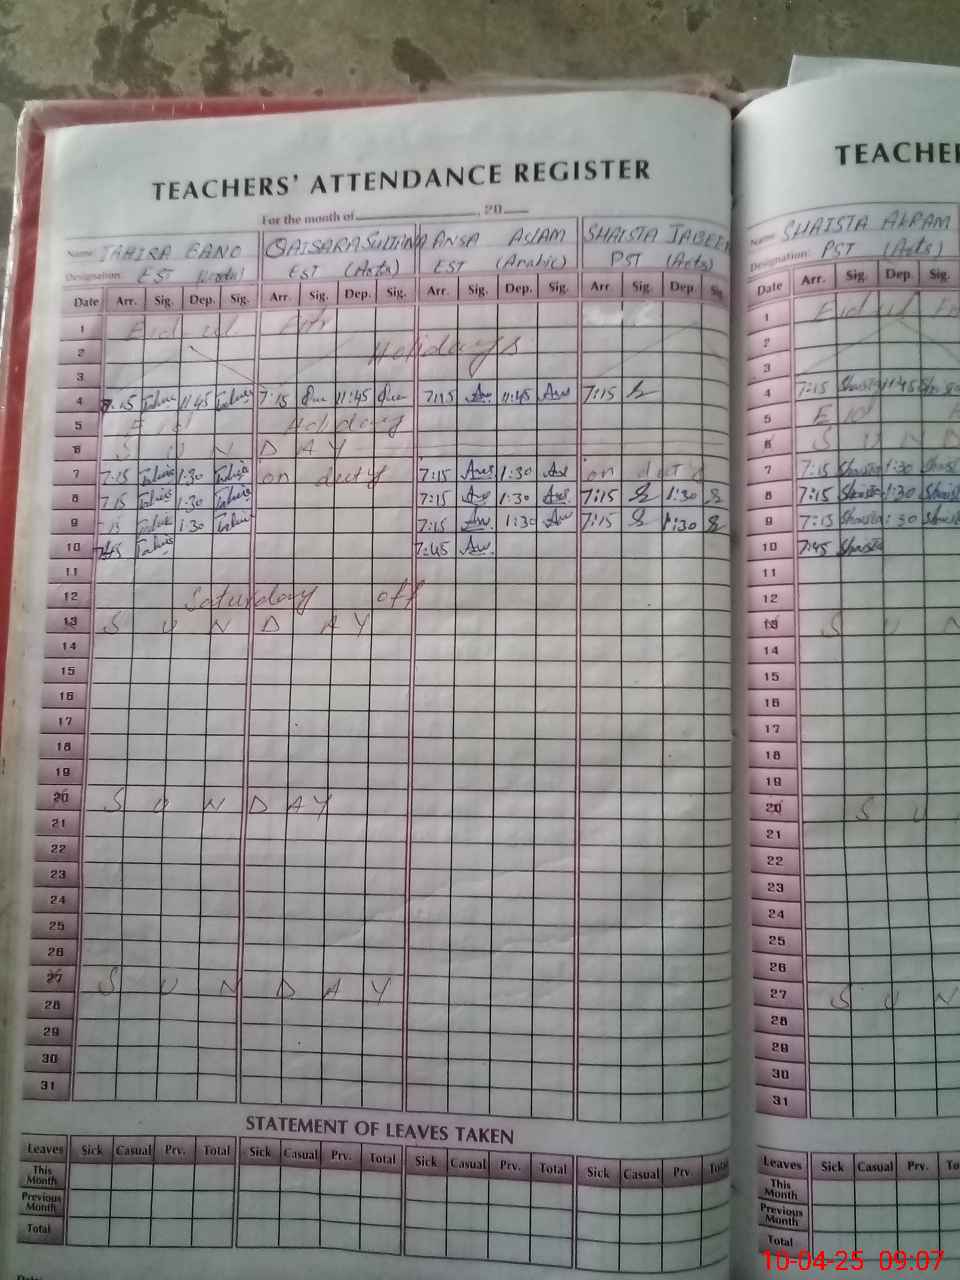 TEACHERS' ATTENDANCE REGISTER
For the month of , 20
Name: TAHIRA BANO QAISARA SULTANA ANSA ASLAM SHAISTA JABEEN
Designation: EST EST (Arts) EST (Arabic) PST (Arts)
Date Arr. Sig. Dep. Sig. Arr. Sig. Dep. Sig. Arr. Sig. Dep. Sig. Arr. Sig. Dep. Sig.
1 Eid ul Fitr
2 Holidays
3
4 7:15 11:45 7:15 11:45 7:15 11:45 7:15
5 Eid Holiday
6 S U N D A Y
7 7:15 Tahira 1:30 Tahira on duty 7:15 1:30 on duty
8 7:15 Tahira 1:30 Tahira 7:15 1:30 7:15 1:30
9 7:15 Tahira 1:30 Tahira 7:15 1:30 7:15 1:30
10 7:45 Tahira 7:45
11
12 Saturday off
13 S U N D A Y
14
15
16
17
18
19
20 S U N D A Y
21
22
23
24
25
26
27 S U N D A Y
28
29
30
31
STATEMENT OF LEAVES TAKEN
Leaves Sick Casual Prv. Total Sick Casual Prv. Total Sick Casual Prv. Total Sick Casual Prv. Total
This Month
Previous Month
Total
TEACHE
Name: SHAISTA AKRAM
Designation: PST (Arts)
Date Arr. Sig. Dep. Sig.
1 Eid ul
2
3
4 7:15 Shaista 11:45
5 Eid
6 S U N D
7 7:15 Shaista 1:30
8 7:15 Shaista 1:30
9 7:15 Shaista 1:30
10 7:45 Shaista
11
12
13 S U N
14
15
16
17
18
19
20 S U
21
22
23
24
25
26
27 S U N
28
29
30
31
Leaves Sick Casual Prv. To
This Month
Previous Month
Total
10-04-25 09:07